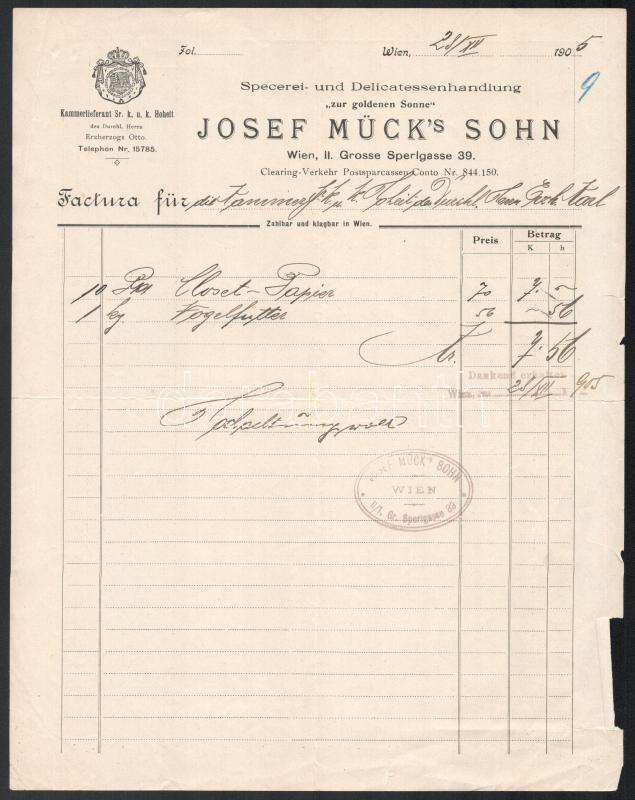 Fol. Wien, 28/XII 1905
9
Specerei- und Delicatessenhandlung
„zur goldenen Sonne“
JOSEF MÜCK's SOHN
Wien, II. Grosse Sperlgasse 39.
Clearing-Verkehr Postsparcassen-Conto Nr. 844.150.
Kammerlieferant Sr. k. u. k. Hoheit
des Durchl. Herrn
Erzherzogs Otto.
Telephon Nr. 15785.
Factura für die Kammer Sr. k. u. k. Hoheit des Durchl. Herrn Erzh. Karl
Zahlbar und klagbar in Wien.
Preis Betrag
K h
10 Closet-Papier 70 7 . –
1 kg Vogelfutter 56 – 56
Kr. 7.56
Dankend erhalten
Wien, am 28/XII 1905
Hochachtungsvoll
JOSEF MÜCK's SOHN
WIEN
II/1. Gr. Sperlgasse 39